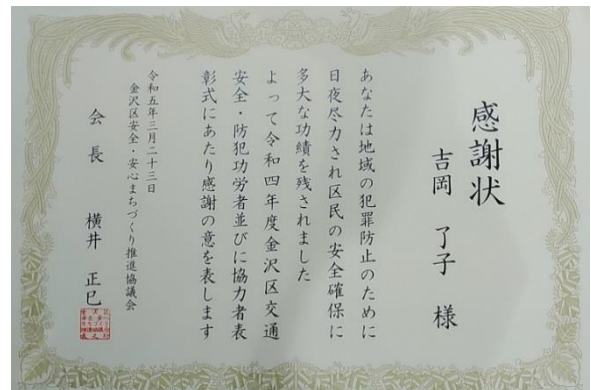 感謝状
吉岡 了子 様
あなたは地域の犯罪防止のために
日夜尽力され区民の安全確保に
多大な功績を残されました
よって令和四年度金沢区交通
安全・防犯功労者並びに協力者表
彰式にあたり感謝の意を表します
令和五年三月二十三日
金沢区安全・安心まちづくり推進協議会
会長 横井 正巳